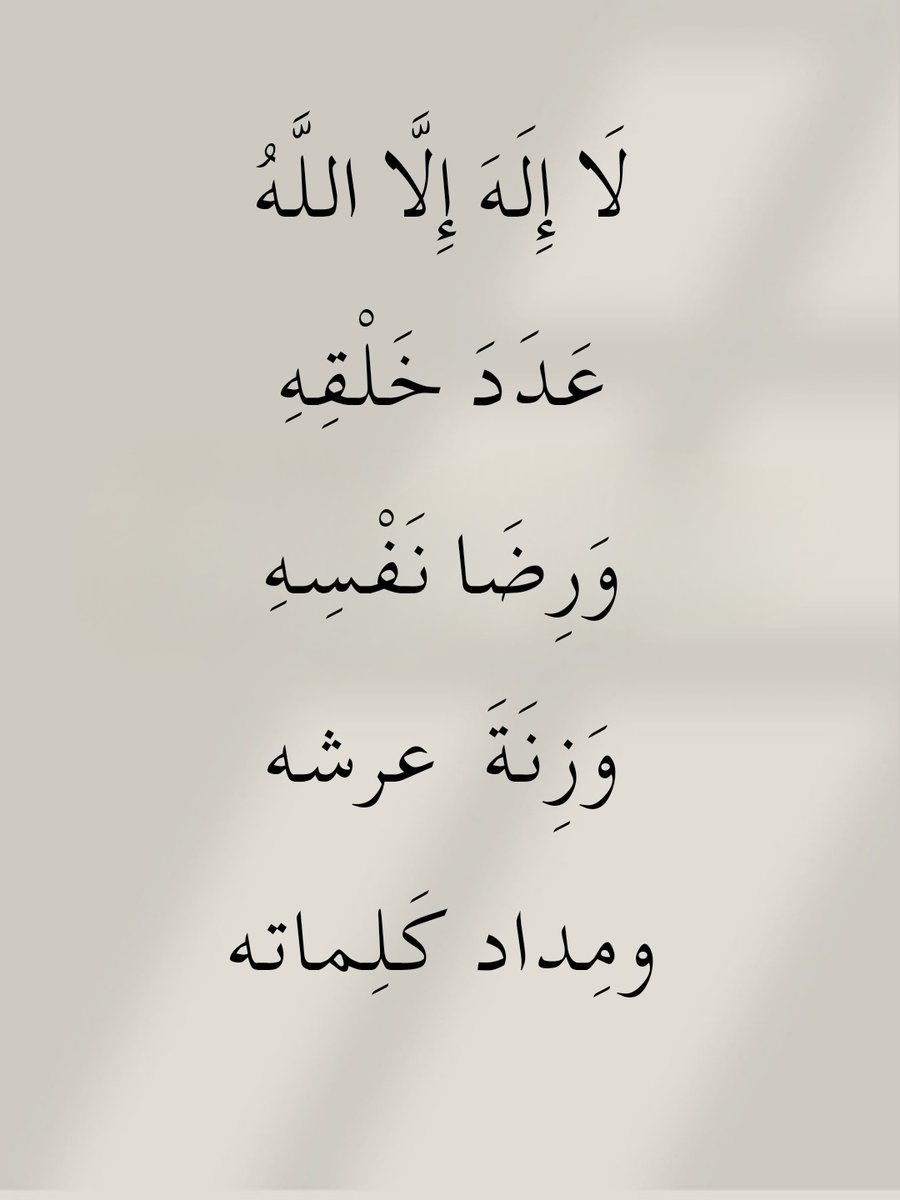 لَا إِلَهَ إِلَّا اللَّهُ
عَدَدَ خَلْقِهِ
وَرِضَا نَفْسِهِ
وَزِنَةَ عرشه
ومِداد كَلِماته